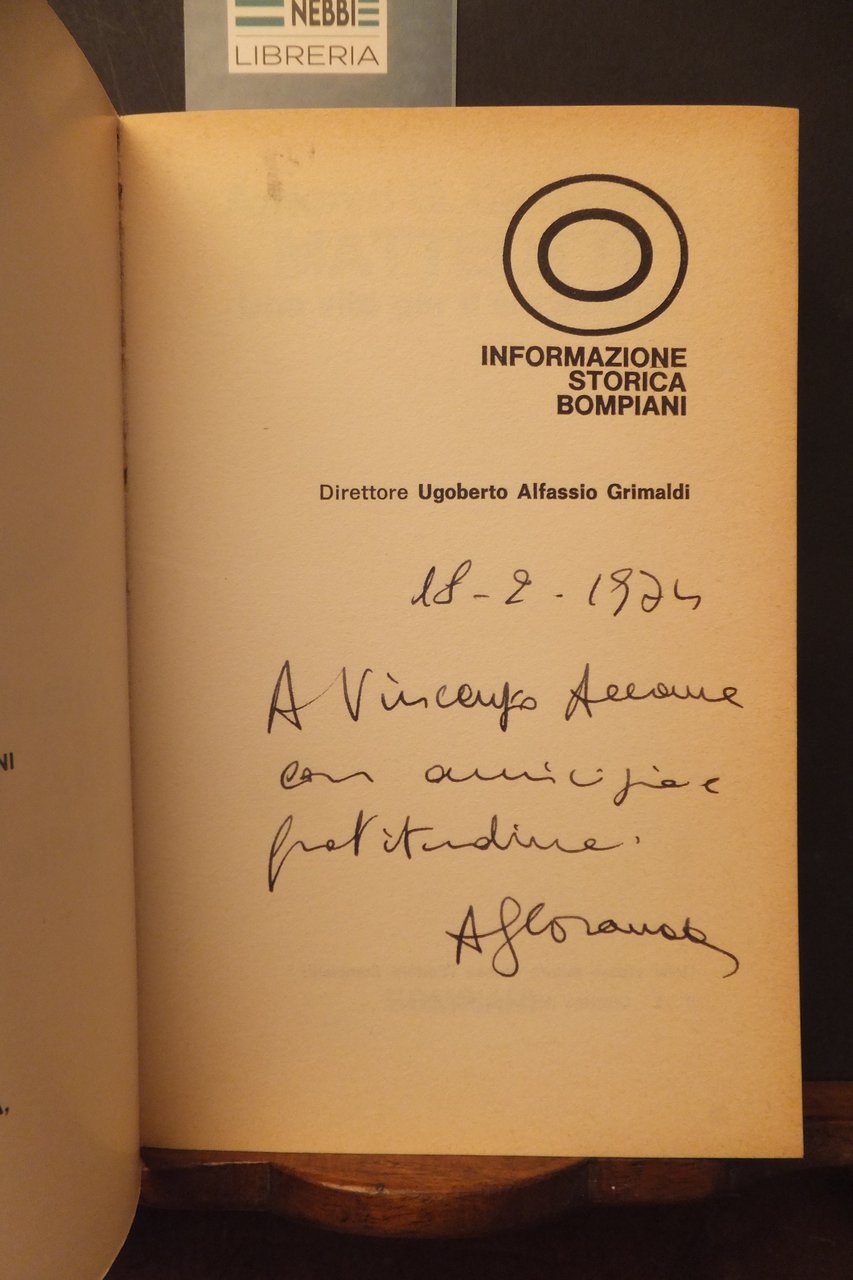 NEBBI
LIBRERIA
INFORMAZIONE
STORICA
BOMPIANI
Direttore Ugoberto Alfassio Grimaldi
18-2-1974
A Vincenzo Accame
con amicizia e
gratitudine.
NI